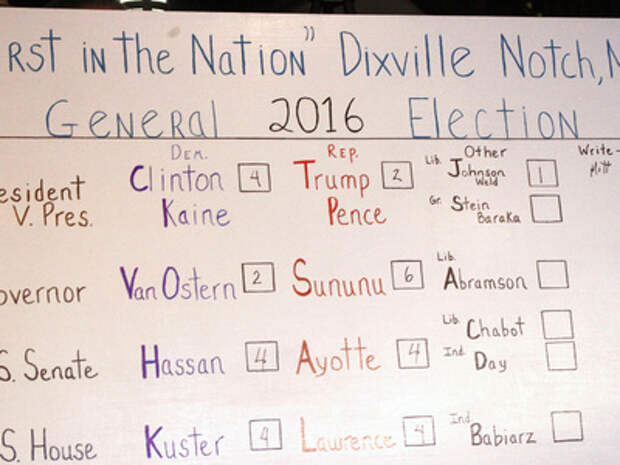 RST IN THE NATION" DIXVILLE NOTCH, N
GENERAL 2016 ELECTION
DEM. REP. Other Write-
esident Clinton 4 Trump 2 Lib. Johnson Weld 1 Mitt
V. Pres. Kaine Pence Gr. Stein Baraka
overnor Van Ostern 2 Sununu 6 Lib. Abramson
Lib. Chabot
S. Senate Hassan 4 Ayotte 4 Ind. Day
S. House Kuster 4 Lawrence 4 Ind Babiarz